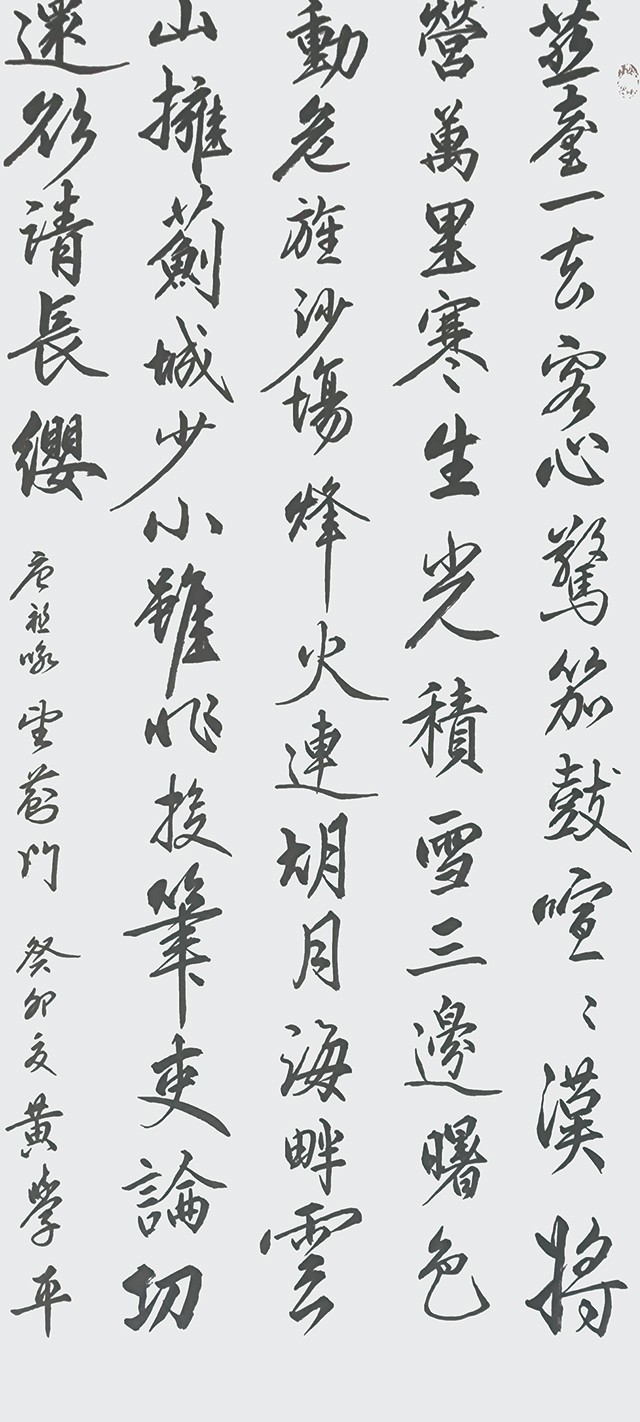 燕臺一去客心驚笳鼓喧〻漢將
營萬里寒生光積雪三邊曙色
動危旌沙場烽火連胡月海畔雲
山擁薊城少小雖非投筆吏論功
還欲請長纓 唐祖咏望薊門 癸卯夏黃學平